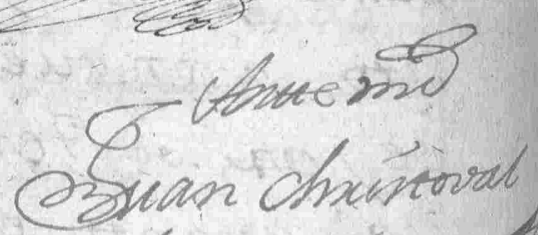 Ante mí
Juan Christoval